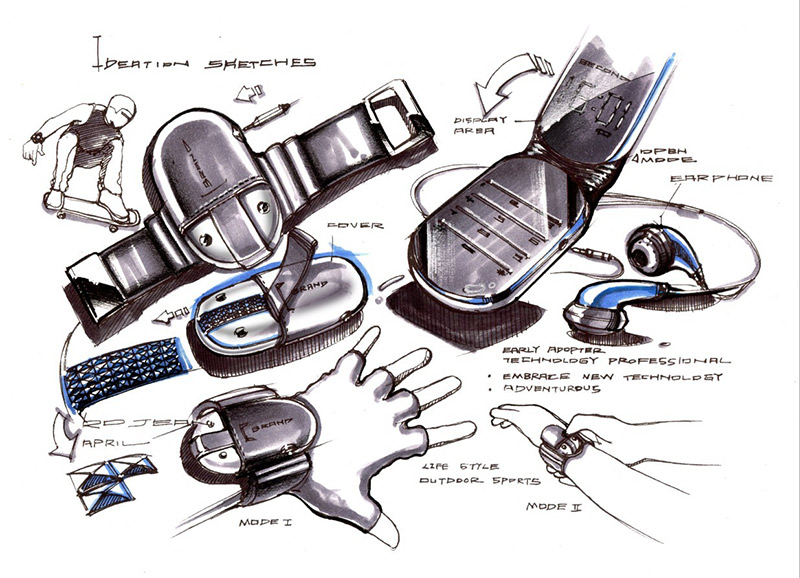 IDEATION SKETCHES
SECOND
DISPLAY
AREA
OPEN
MODE
EARPHONE
COVER
BRAND
EARLY ADOPTER
TECHNOLOGY PROFESSIONAL
• EMBRACE NEW TECHNOLOGY
• ADVENTUROUS
APRIL
BRAND
LIFE STYLE
OUTDOOR SPORTS
MODE I
MODE II